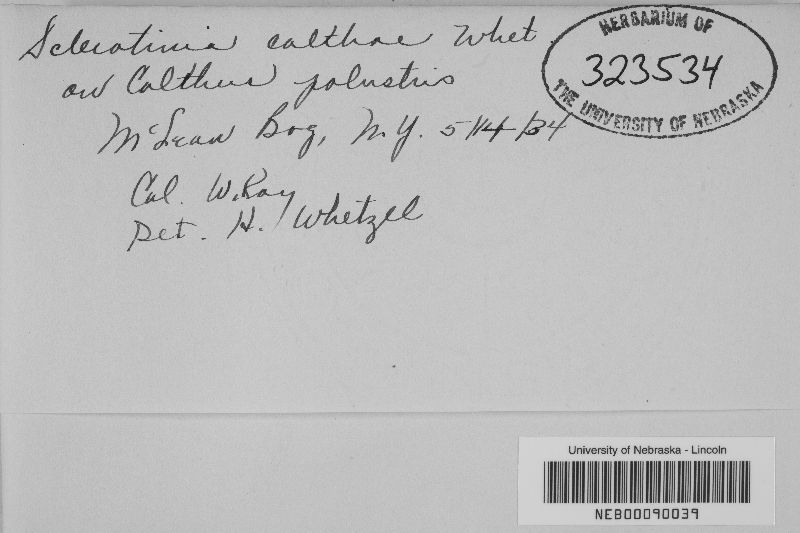 Sclerotinia calthae Whet.
on Caltha palustris
McLean Bog, N.Y. 5/14/34
Col. W. Ray
Det. H. Whetzel
HERBARIUM OF
323534
THE UNIVERSITY OF NEBRASKA
University of Nebraska - Lincoln
NEB00090039